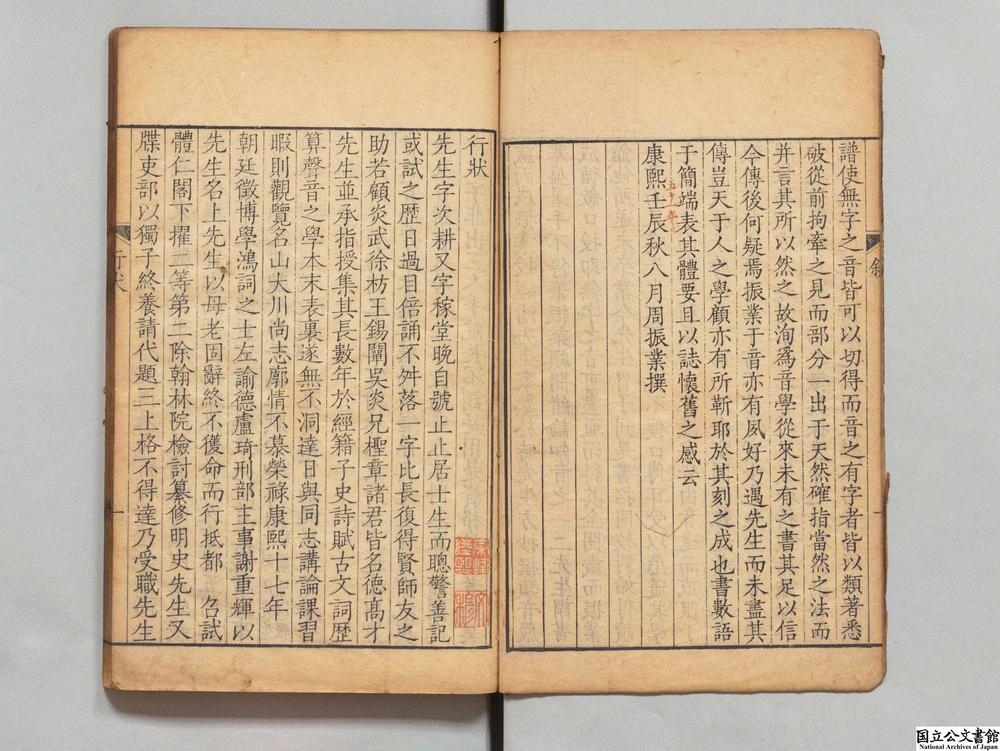 譜使無字之音皆可以切得而音之有字者皆以類著悉
破從前拘牽之見而部分一出于天然確指當然之法而
并言其所以然之故洵爲音學從來未有之書其足以信
今傳後何疑焉振業于音亦有夙好乃遇先生而未盡其
傳豈天于人之學顧亦有所靳耶於其刻之成也書數語
于簡端表其體要且以誌懷舊之感云
康熙壬辰秋八月周振業撰
五十一年
叙
一
行狀
先生字次耕又字稼堂晚自號止止居士生而聰警善記
或試之歴日過目倍誦不舛落一字比長復得賢師友之
助若顧炎武徐枋王錫闡吳炎兄檉章諸君皆名德高才
先生並承指授集其長數年於經籍子史詩賦古文詞歴
算聲音之學木末表裏遂無不洞達日與同志講論課習
暇則觀覽名山大川尚志廓情不慕榮祿康熙十七年
朝廷徵博學鴻詞之士左諭德盧琦刑部主事謝重輝以
先生名上先生以母老固辭終不獲命而行抵都 召試
體仁閣下擢二等第二除翰林院檢討纂修明史先生又
牒吏部以獨子終養請代題三上格不得達乃受職先生
行狀
一
国立公文書館
National Archives of Japan